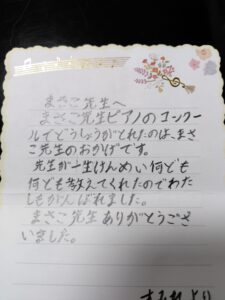 まさこ先生へ
まさこ先生ピアノのコンクー
ルでどうしょうがとれたのは、まさ
こ先生のおかげです。
先生が一生けんめい何ども
何ども教えてくれたのでわた
しもがんばれました。
まさこ先生ありがとうござ
いました。
より